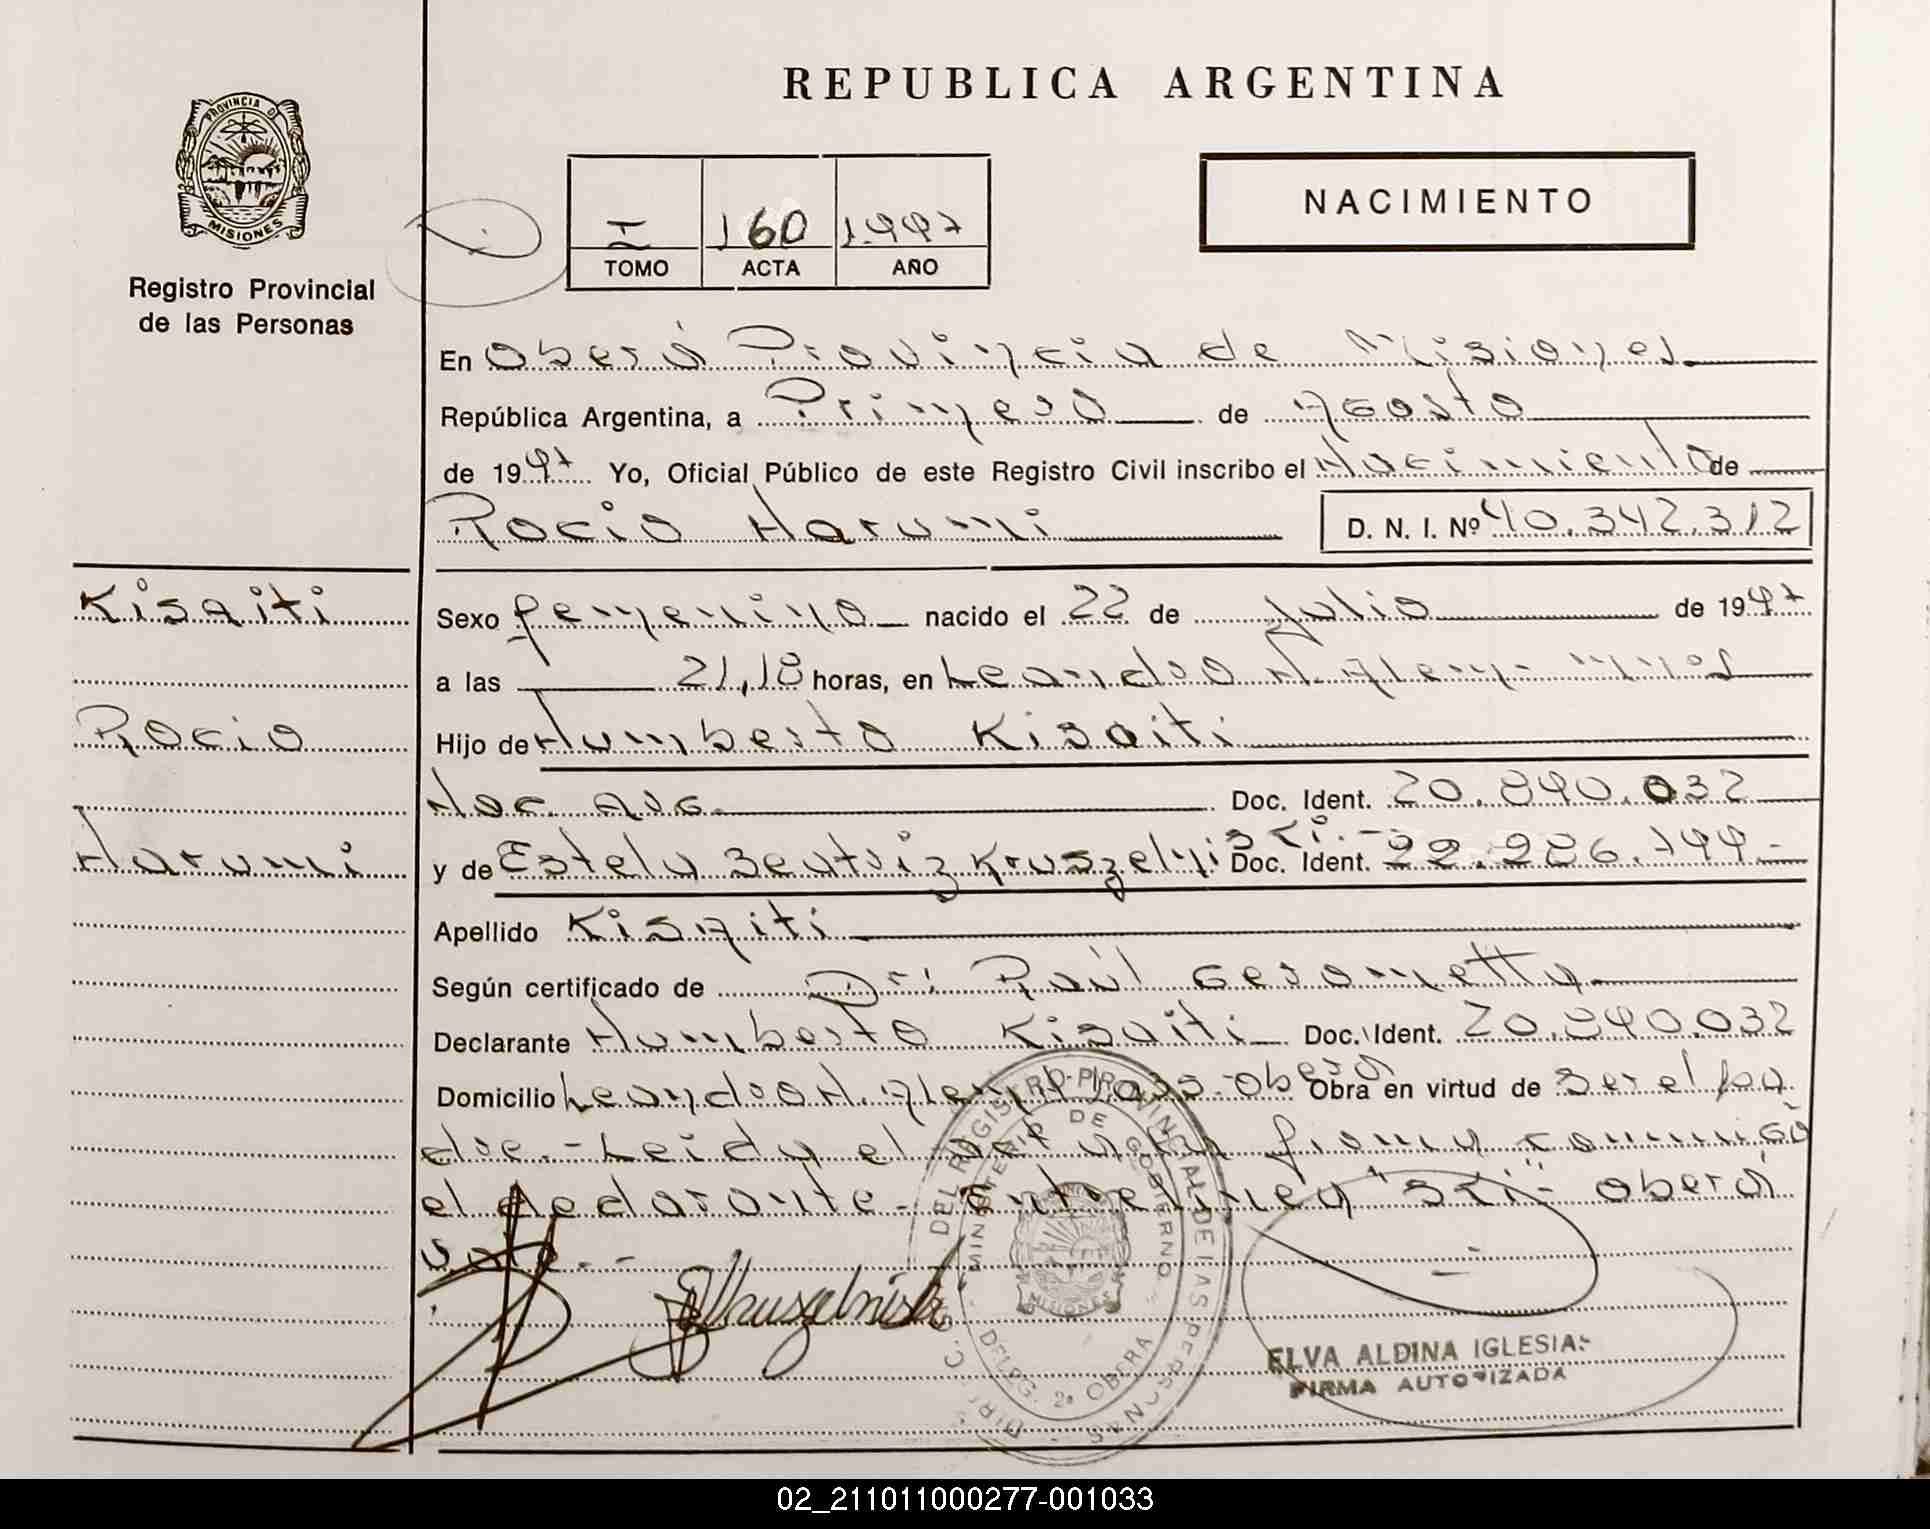 REPUBLICA ARGENTINA
PROVINCIA D
MISIONES
Registro Provincial
de las Personas
I 160 1997
TOMO ACTA AÑO
NACIMIENTO
En Oberá Provincia de Misiones
República Argentina, a Primero de Agosto
de 1997 Yo, Oficial Público de este Registro Civil inscribo el Nacimiento de
Rocio Harumi D. N. I. Nº 40.342.312
Kisaiti
Rocio
Harumi
Sexo femenino nacido el 22 de Julio de 1997
a las 21,18 horas, en Leandro N. Alem
Hijo de Humberto Kisaiti
Nac. Arg. Doc. Ident. 20.840.032
y de Estela Beatriz Kruszelniski.- Doc. Ident. 22.286.744-
Apellido Kisaiti
Según certificado de Dr: Raúl Gerometta
Declarante Humberto Kisaiti Doc. Ident. 20.840.032
Domicilio Leandro N. Alem -Oberá Obra en virtud de ser el pa
dre.- Leida el acta la firma conmigo
el declarante.- entrelinea "ski"- oberá
vale.-
DIRECC. GRAL. DEL REGISTRO PROVINCIAL DE LAS PERSONAS
MINISTERIO DE GOBIERNO
MISIONES
DELEG. 2ª OBERA
ELVA ALDINA IGLESIAS
FIRMA AUTORIZADA
02_211011000277-001033